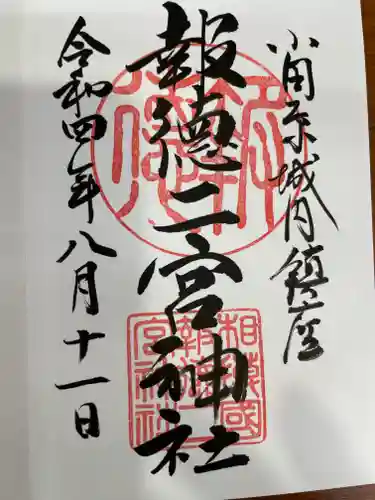 小田原城内鎮座
報徳二宮神社
令和四年八月十一日
報徳
相模國
報徳二
宮神社